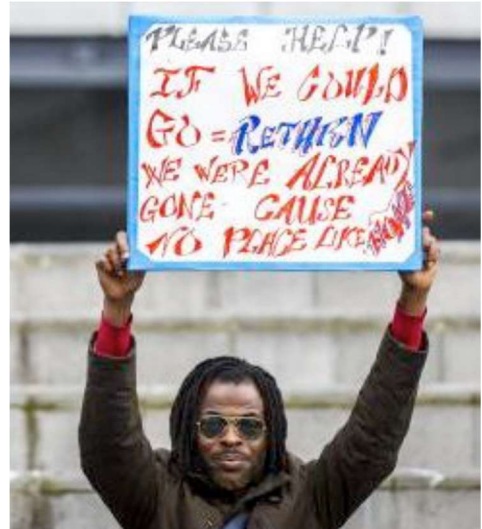 PLEASE HELP!
IF WE COULD
GO = RETURN
WE WERE ALREADY
GONE CAUSE
NO PLACE LIKE HOME